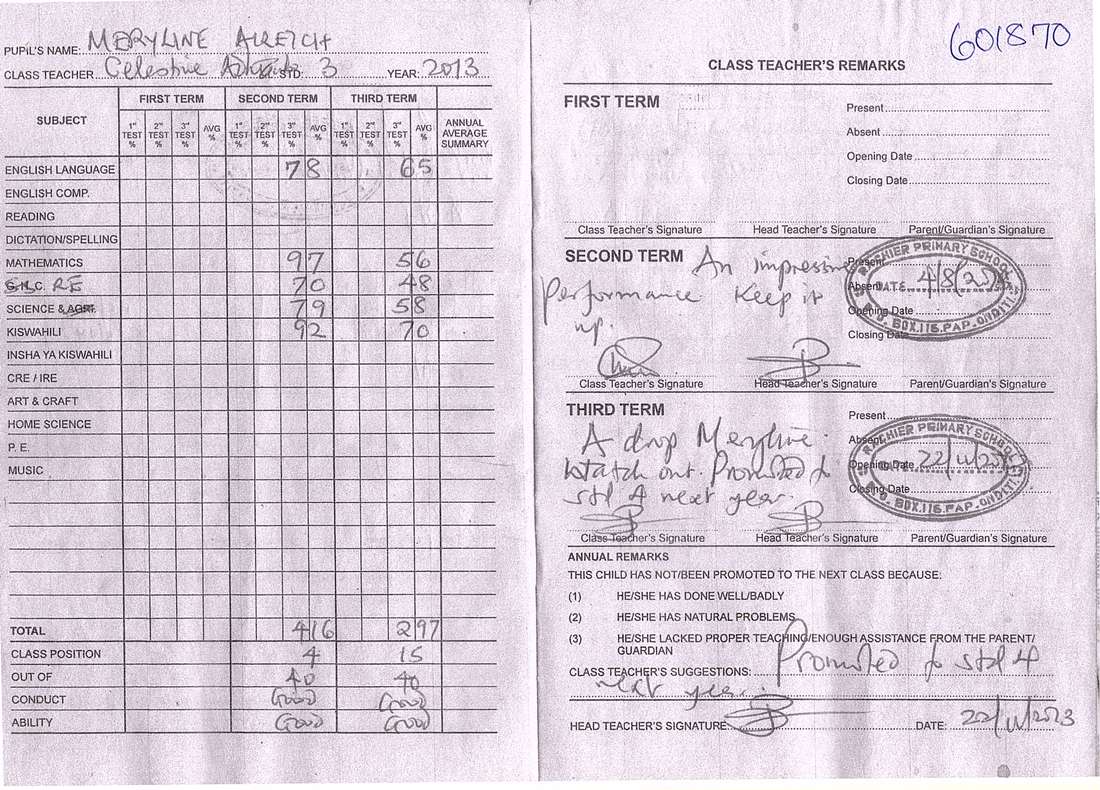 PUPIL'S NAME: MERYLINE
CLASS TEACHER Celestine STD: 3 YEAR: 2013
SUBJECT FIRST TERM SECOND TERM THIRD TERM ANNUAL AVERAGE SUMMARY
1st TEST % 2nd TEST % 3rd TEST % AVG % 1st TEST % 2nd TEST % 3rd TEST % AVG % 1st TEST % 2nd TEST % 3rd TEST % AVG %
ENGLISH LANGUAGE 78 65
ENGLISH COMP.
READING
DICTATION/SPELLING
MATHEMATICS 97 56
G.H.C. RE 70 48
SCIENCE & AGRI. 79 58
KISWAHILI 92 70
INSHA YA KISWAHILI
CRE / IRE
ART & CRAFT
HOME SCIENCE
P. E.
MUSIC
TOTAL 416 297
CLASS POSITION 4 15
OUT OF 40 40
CONDUCT Good Good
ABILITY Good Good
601870
CLASS TEACHER'S REMARKS
FIRST TERM
Present
Absent
Opening Date
Closing Date
Class Teacher's Signature Head Teacher's Signature Parent/Guardian's Signature
SECOND TERM An impressive
performance Keep it
up.
Present
Absent
Opening Date
Closing Date
PRIMARY SCHOOL
DATE 4/8/20
P.O. BOX.116.PAP-ONDITI
Class Teacher's Signature Head Teacher's Signature Parent/Guardian's Signature
THIRD TERM
A drop Meryline.
Watch out. Promoted to
std 4 next year.
Present
Absent
Opening Date
Closing Date
PRIMARY SCHOOL
22/11/20
P.O. BOX.116.PAP-ONDITI
Class Teacher's Signature Head Teacher's Signature Parent/Guardian's Signature
ANNUAL REMARKS
THIS CHILD HAS NOT/BEEN PROMOTED TO THE NEXT CLASS BECAUSE:
(1) HE/SHE HAS DONE WELL/BADLY
(2) HE/SHE HAS NATURAL PROBLEMS
(3) HE/SHE LACKED PROPER TEACHING/ENOUGH ASSISTANCE FROM THE PARENT/
GUARDIAN
CLASS TEACHER'S SUGGESTIONS: Promoted to std 4
next year.
HEAD TEACHER'S SIGNATURE: DATE: 22/11/2013